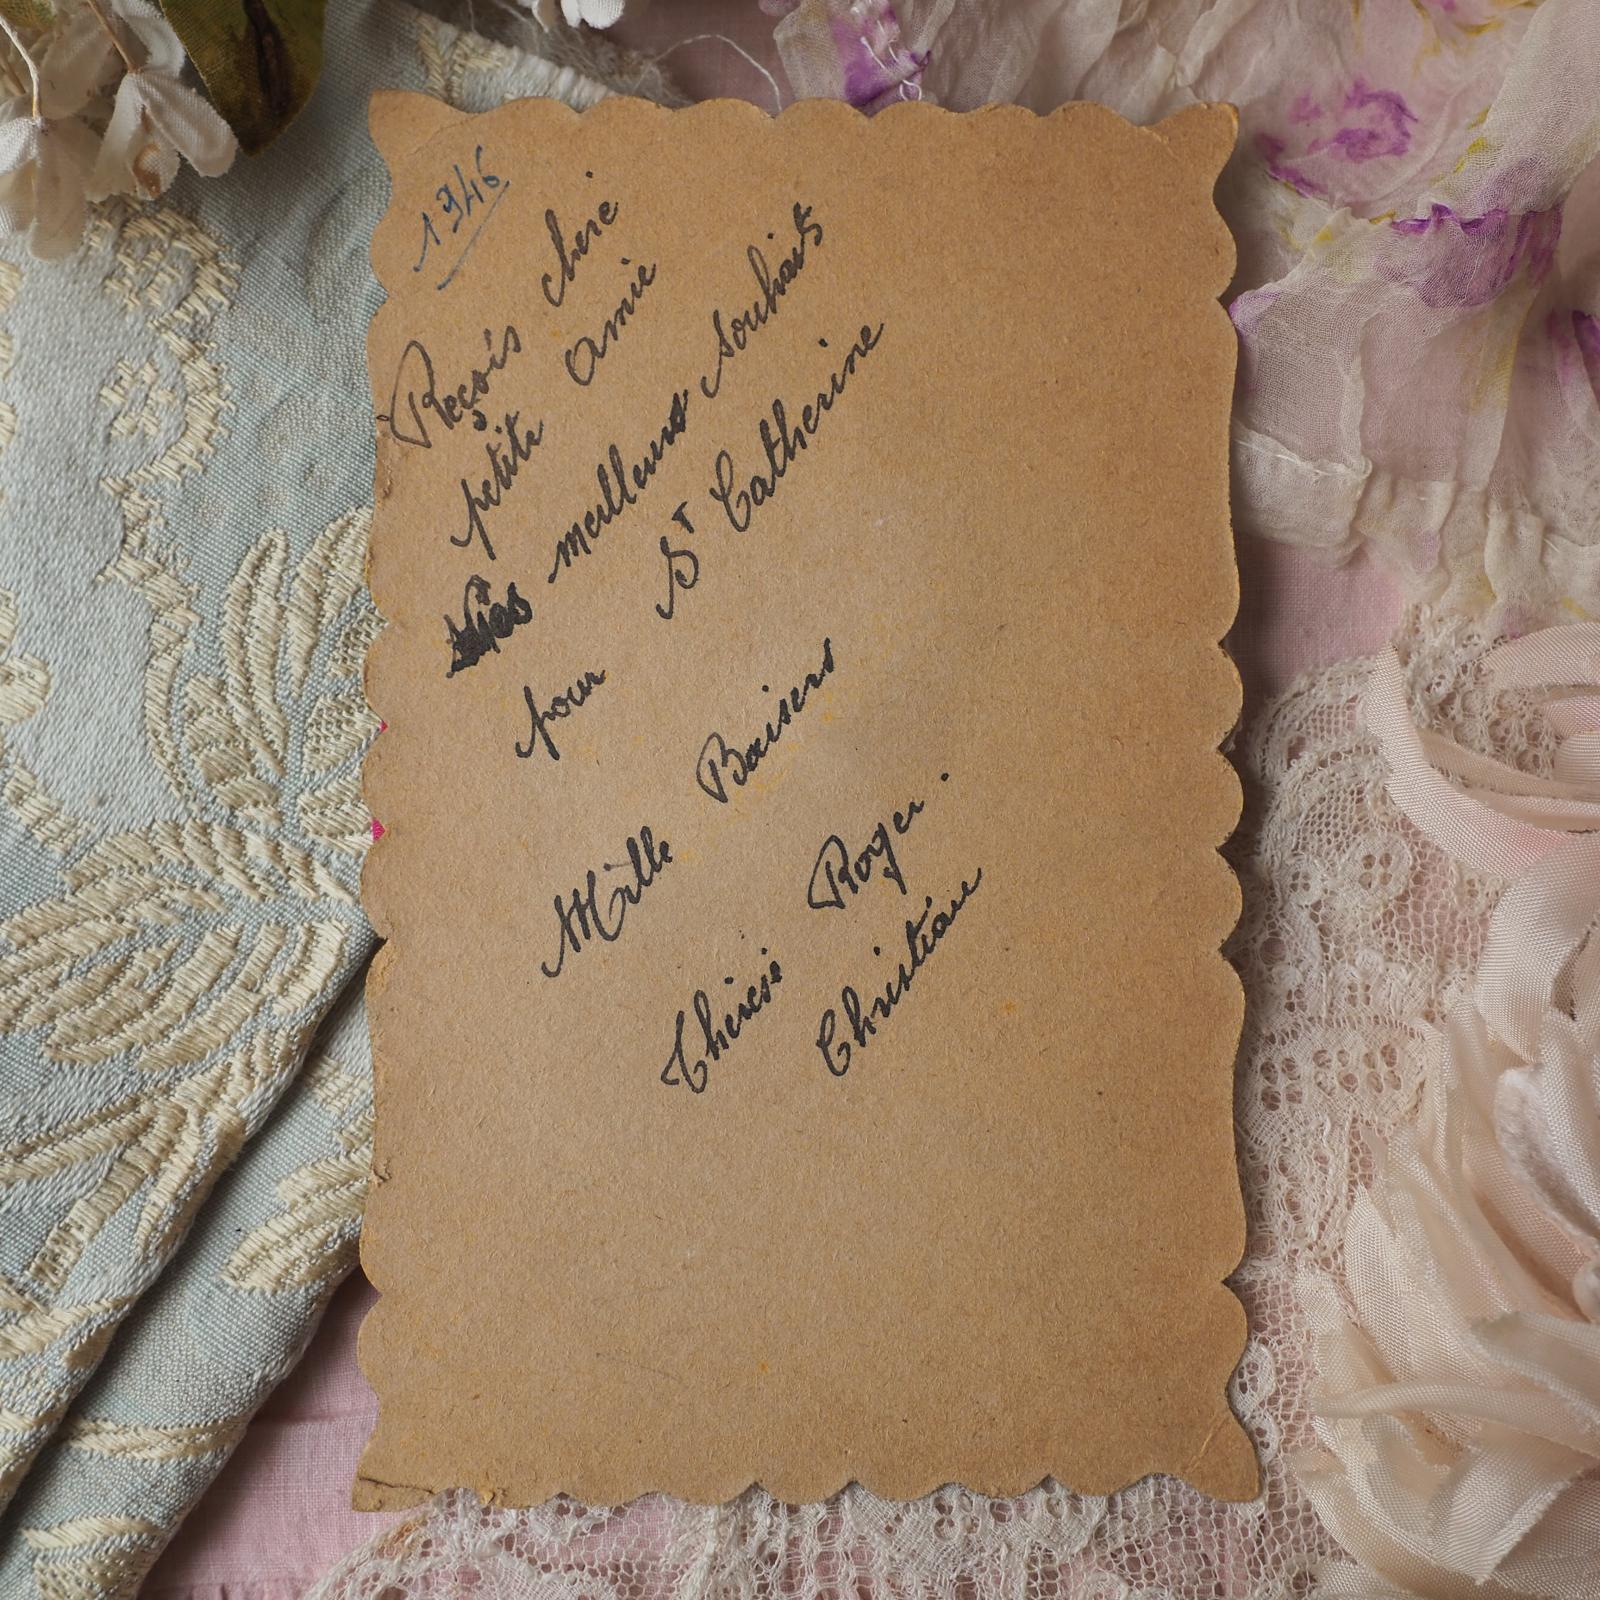 1946
Reçois cheré
petite amie
mes meilleurs souhaits
pour S^T Catherine
Mille Baisers
Thérèse Roger.
Christiane